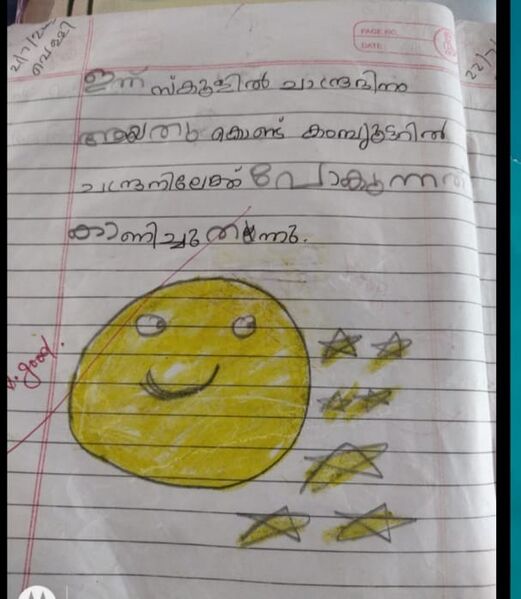 21/7/2
വെള്ളി
PAGE NO.
DATE:
22/7/
ഇന്ന് സ്കൂളിൽ ചാന്ദ്രദിനം
ആയതു കൊണ്ട് കമ്പ്യൂട്ടറിൽ
ചന്ദ്രനിലേക്ക് പോകുന്നത്
കാണിച്ചു തന്നു.
v. good.